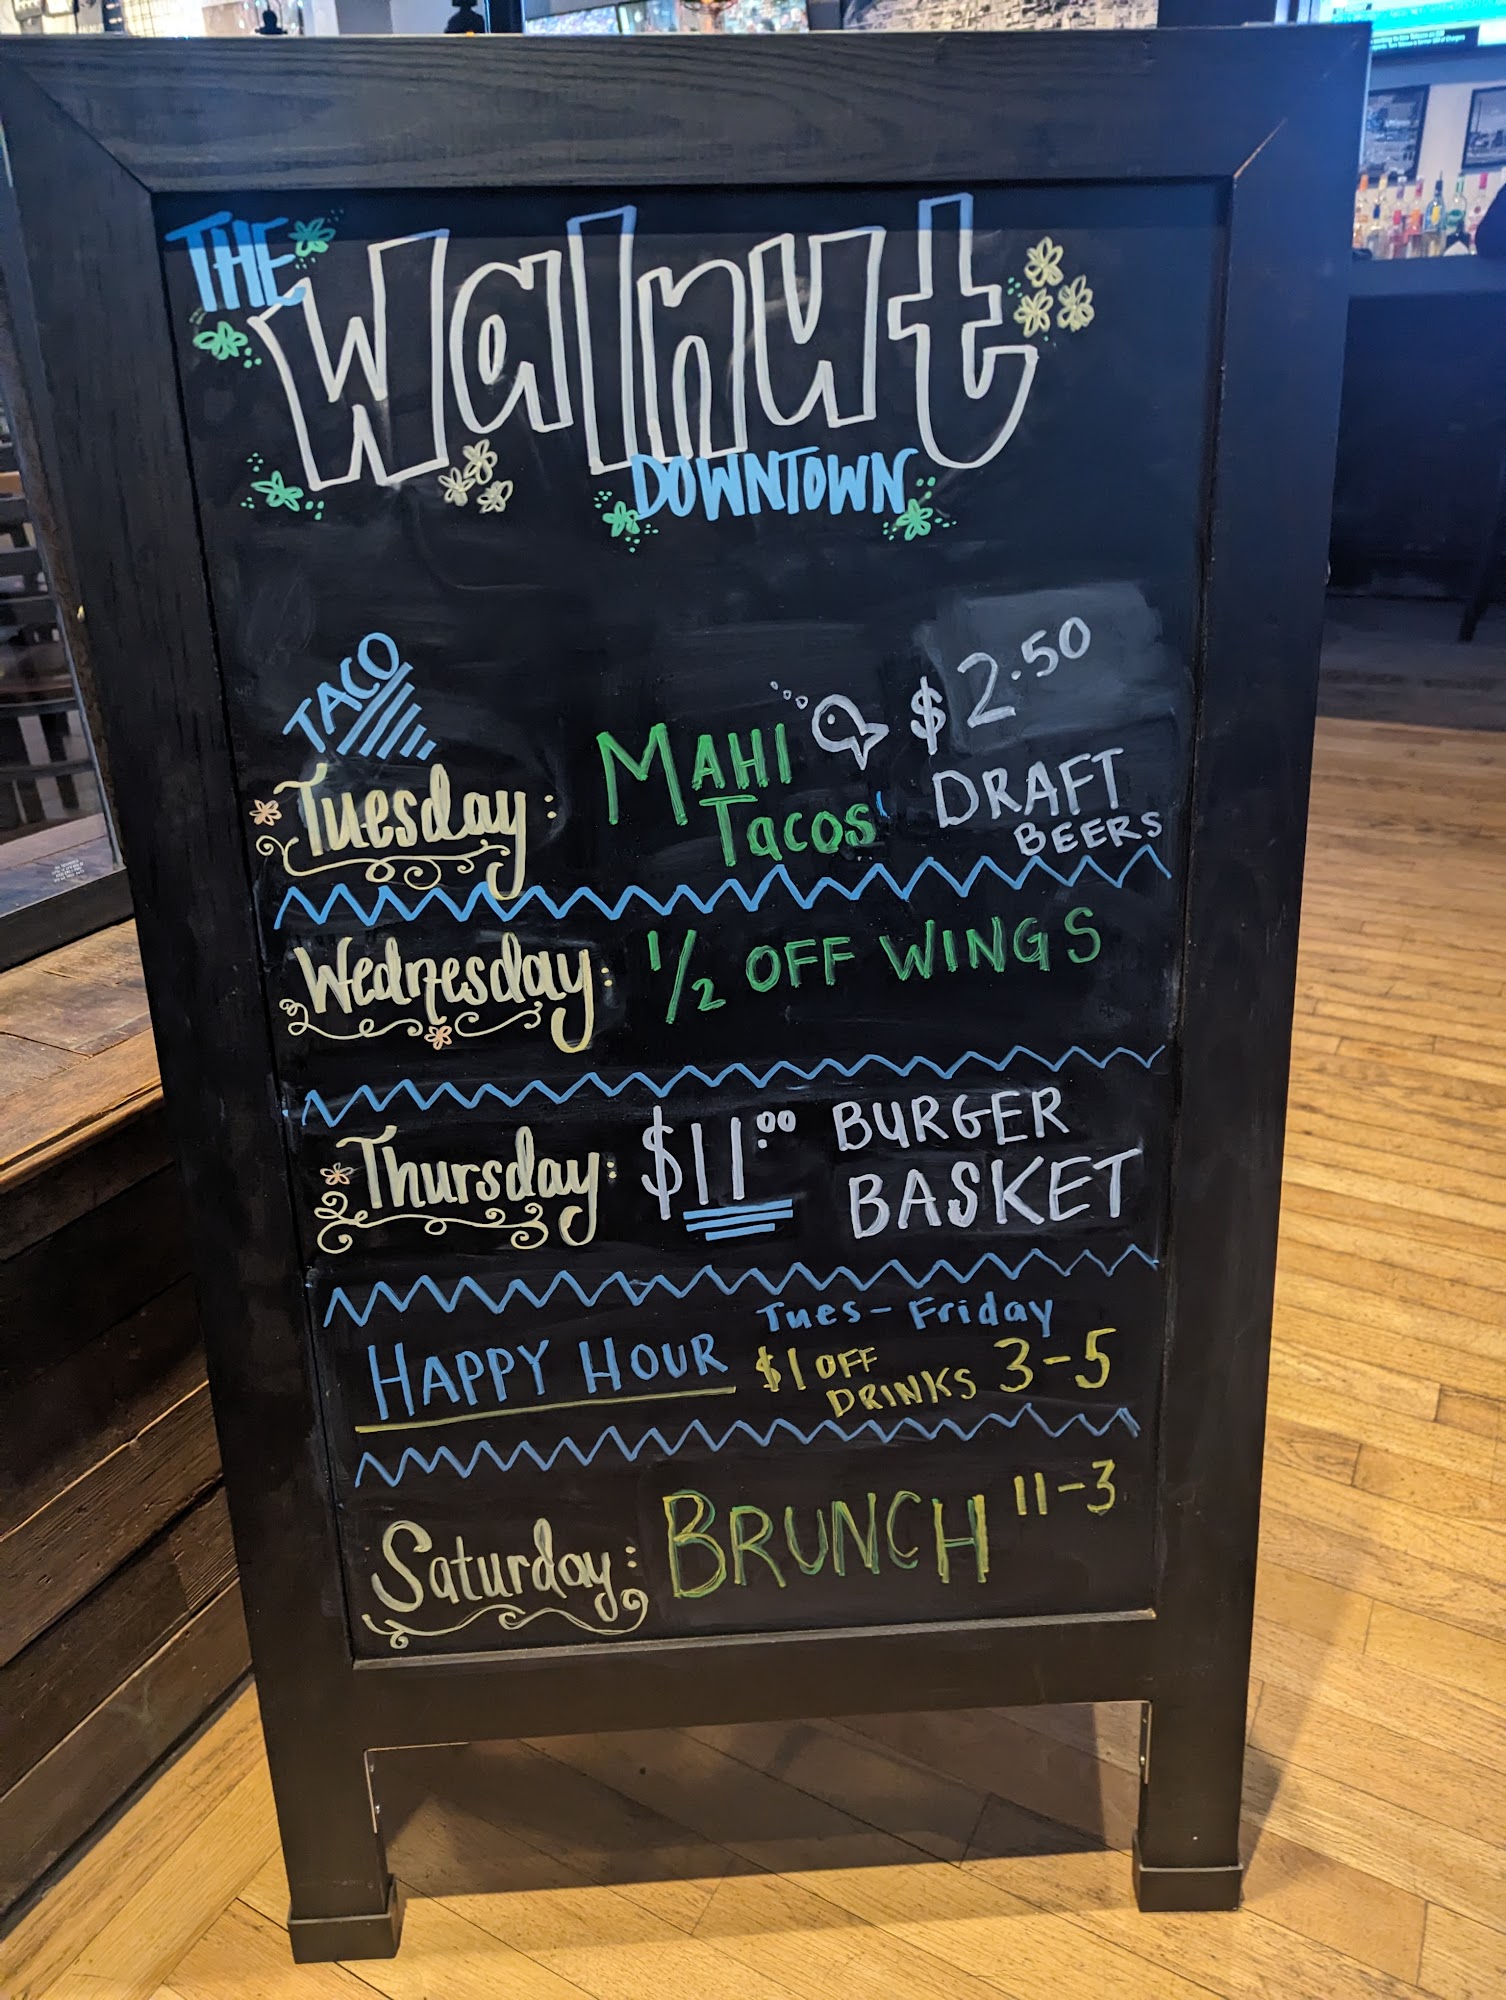 THE
Walnut
DOWNTOWN
TACO
Tuesday: MAHI $2.50
Tacos DRAFT
BEERS
Wednesday: 1/2 OFF WINGS
Thursday: $11.00 BURGER
BASKET
Tues - Friday
HAPPY HOUR $1 OFF 3-5
DRINKS
Saturday: BRUNCH 11-3